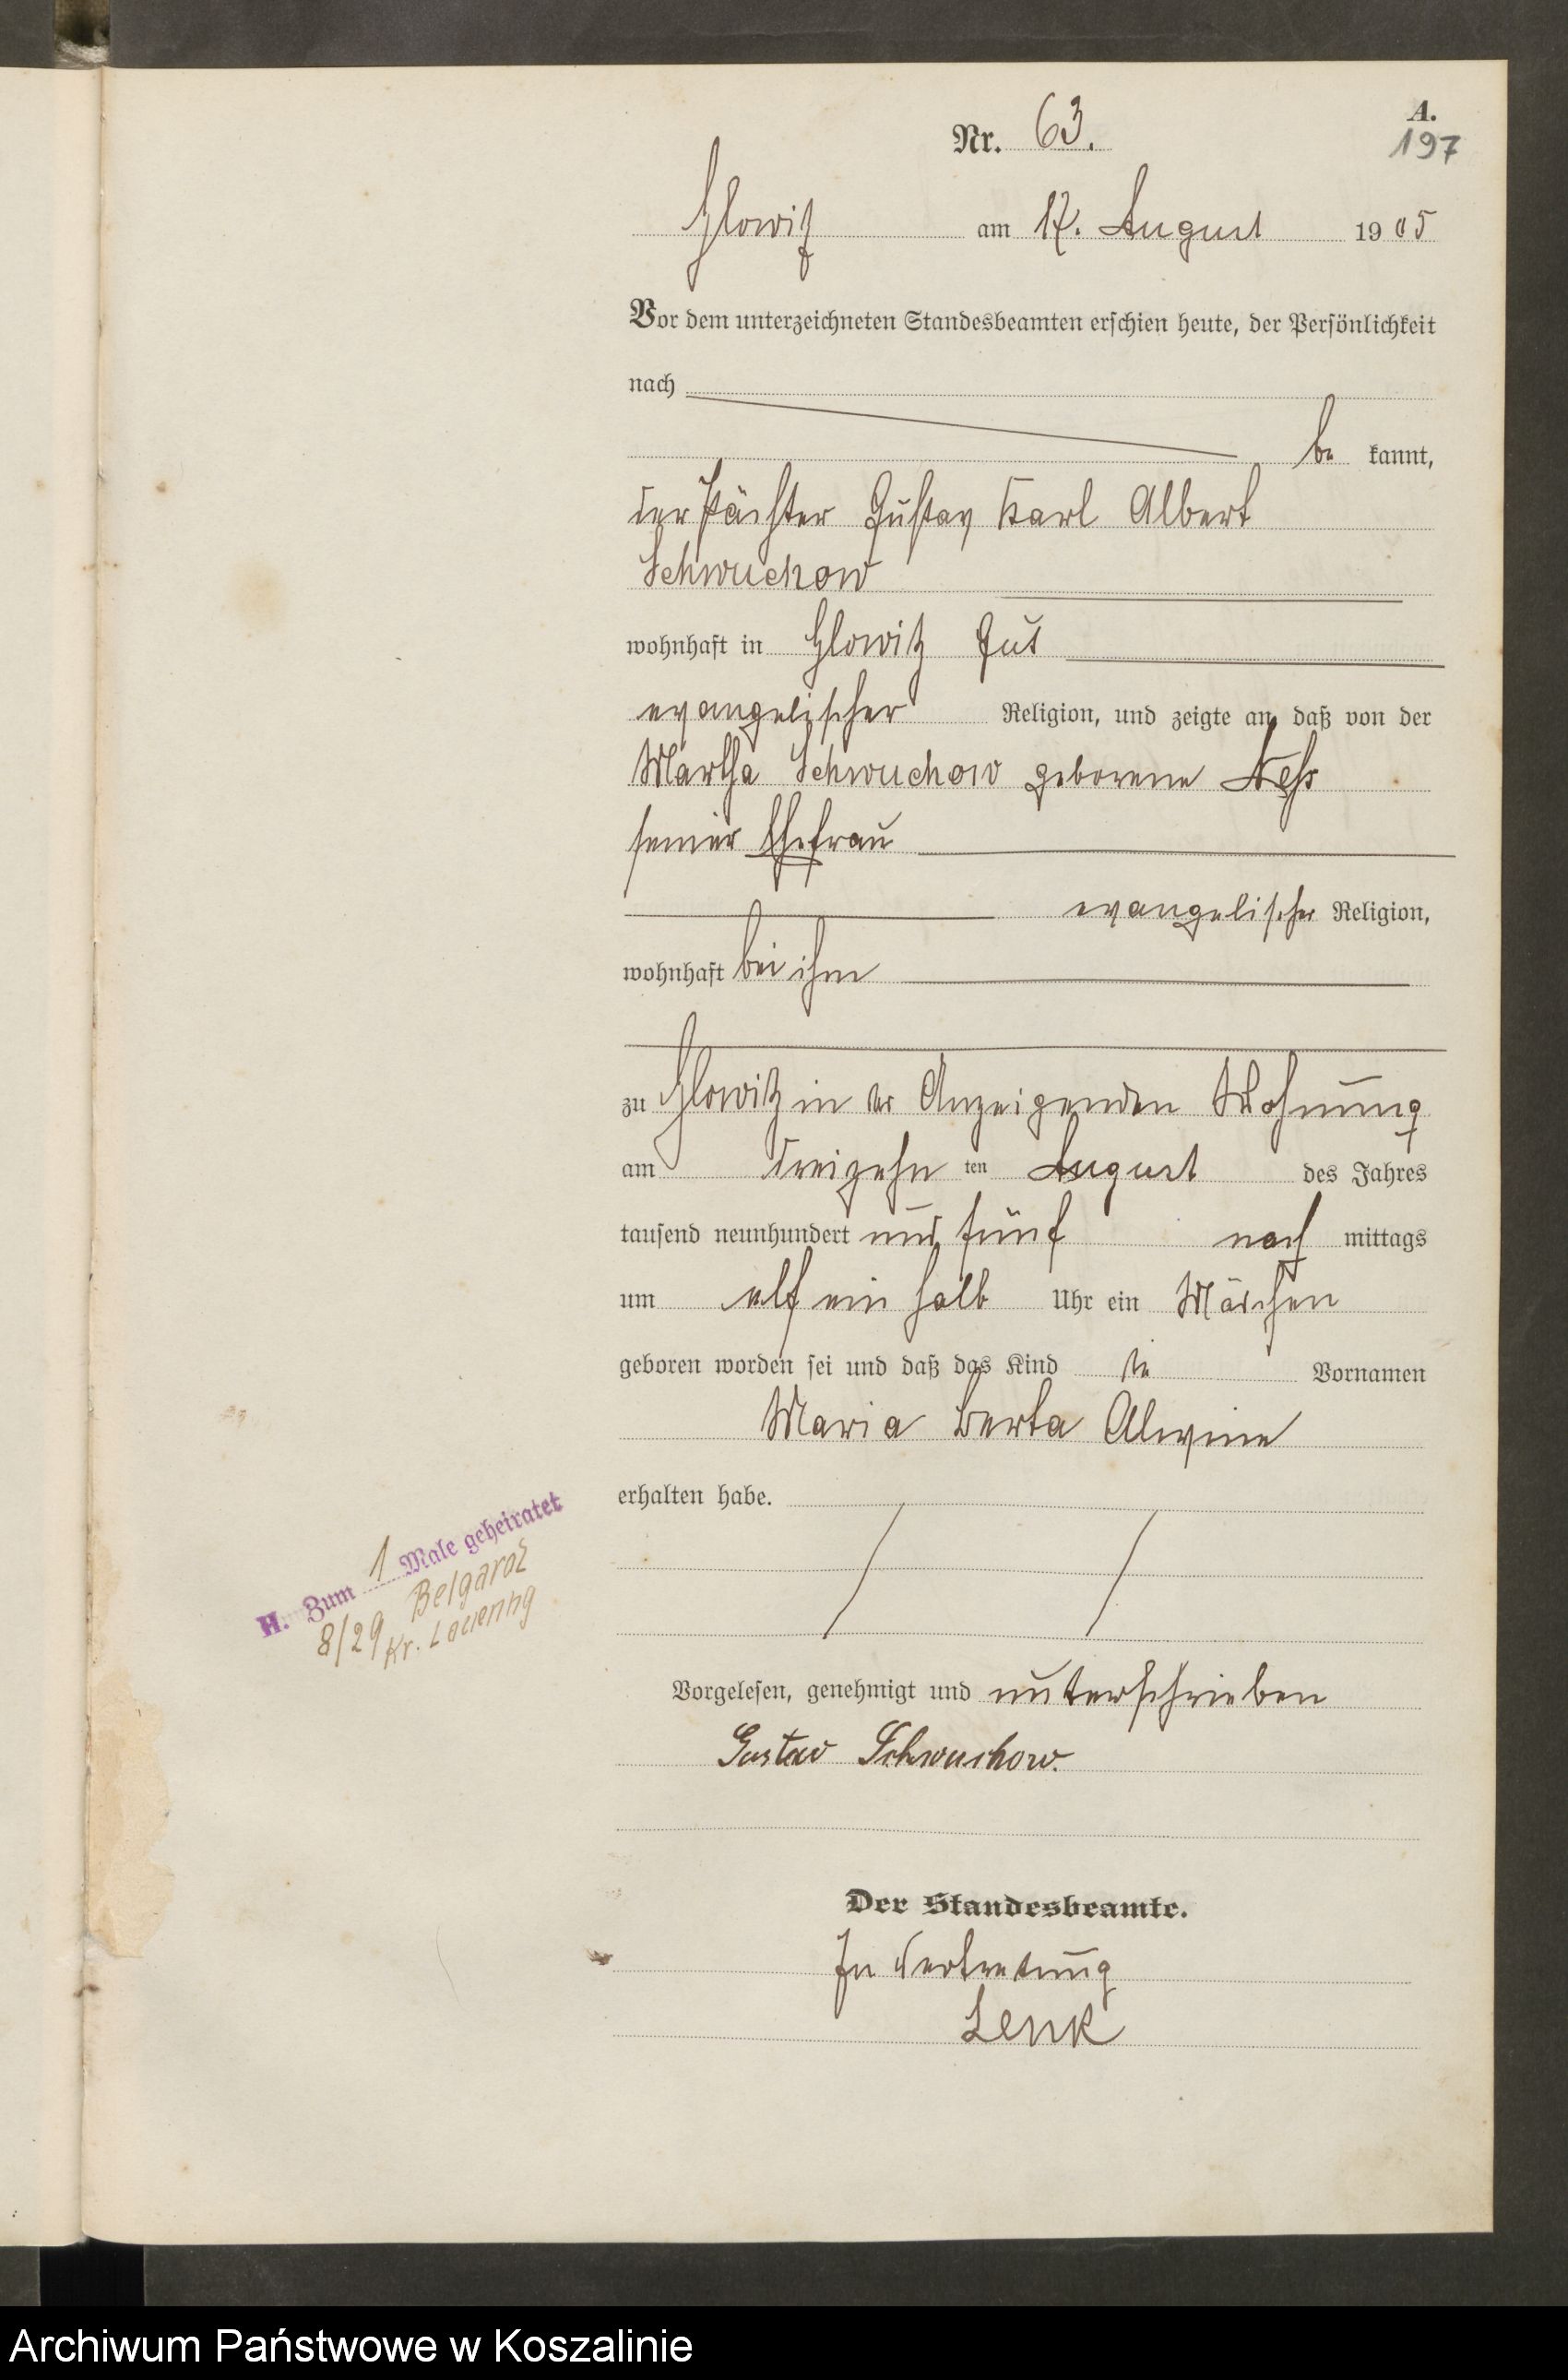 A.
197
Nr. 63.
Glowitz am 17. August 1905
Vor dem unterzeichneten Standesbeamten erschien heute, der Persönlichkeit
nach
be kannt,
der Pächter Gustav Karl Albert
Schwuchow
wohnhaft in Glowitz Gut
evangelischer Religion, und zeigte an, daß von der
Martha Schwuchow geborene
seiner Ehefrau
evangelischer Religion,
wohnhaft bei ihm
zu Glowitz in der Anzeigenden Wohnung
am dreizehn ten August des Jahres
tausend neunhundert und fünf nach mittags
um elf ein halb Uhr ein Mädchen
geboren worden sei und daß das Kind die Vornamen
Maria Berta Alwine
erhalten habe.
H. Zum 1 Male geheiratet
8/29 Belgard
Kr. Lauenbg
Vorgelesen, genehmigt und unterschrieben
Gustav Schwuchow.
Der Standesbeamte.
In Vertretung
Lenk
Archiwum Państwowe w Koszalinie